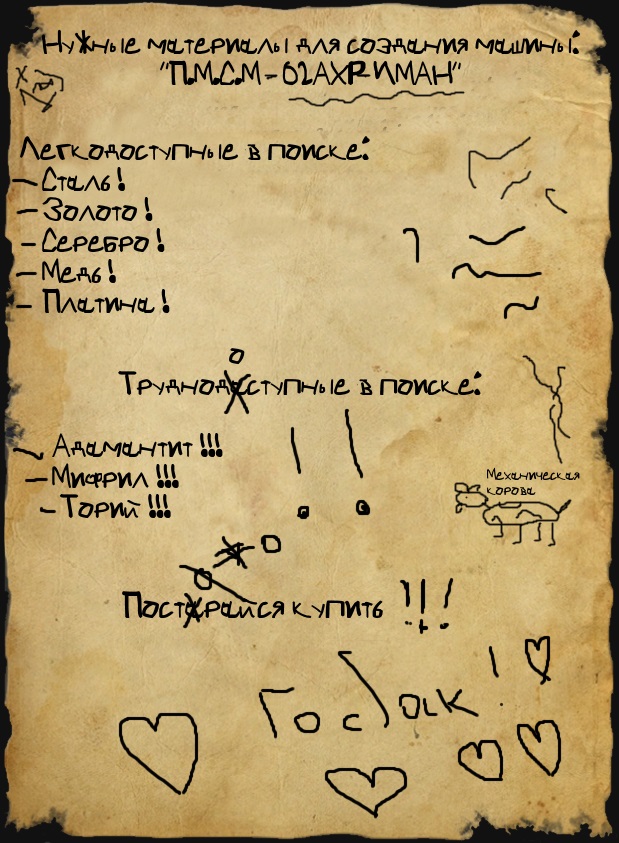 Нужные материалы для создания машины:
"П.М.С.М-02АХРИМАН"
Легкодоступные в поиске:
- Сталь!
- Золото!
- Серебро!
- Медь!
- Платина!
Труднодоступные в поиске:
- Адамантит!!!
- Мифрил!!!
- Торий!!!
Механическая
корова
Постарайся купить !!!